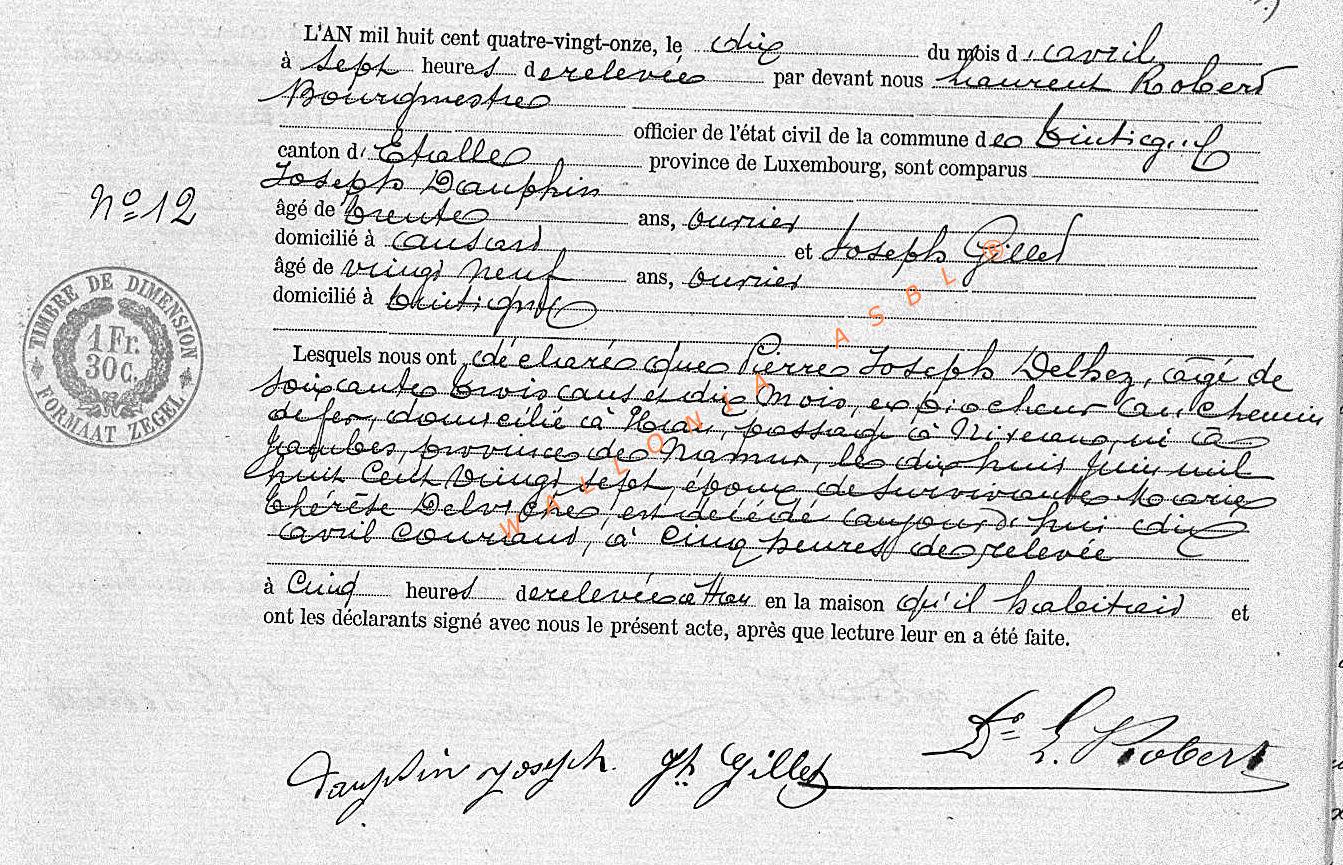 L'AN mil huit cent quatre-vingt-onze, le dix du mois d'avril
à sept heures de relevée par devant nous Laurent Robert
Bourgmestre
officier de l'état civil de la commune de Tintigny
canton d'Etalle province de Luxembourg, sont comparus
Joseph Dauphin
âgé de trente ans, ouvrier
domicilié à Ansart et Joseph Gillet
âgé de vingt neuf ans, ouvrier
domicilié à Tintigny
Lesquels nous ont déclaré que Pierre Joseph Delhez, âgé de
soixante trois ans et dix mois, ex piocheur au chemin
de fer, domicilié à Han, né à
Jambes, province de Namur, le dix huit juin mil
huit cent vingt sept, époux de survivante Marie
Thérèse est décédé aujourd'hui dix
avril courant, à cinq heures de relevée
à cinq heures de relevée à Han en la maison qu'il habitait et
ont les déclarants signé avec nous le présent acte, après que lecture leur en a été faite.
N° 12
TIMBRE DE DIMENSION
1 Fr.
30 C.
FORMAAT ZEGEL
WALLONIA ASBL ®
Dauphin Joseph. Jh Gillet
Dr L. Robert